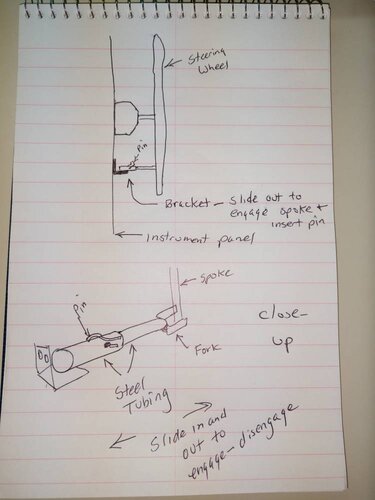 Steering
Wheel
Pin
Bracket - Slide out to
engage spoke +
insert pin
Instrument panel
Spoke
Pin
Fork
close-
up
Steel
Tubing
Slide in and
out to
engage - disengage